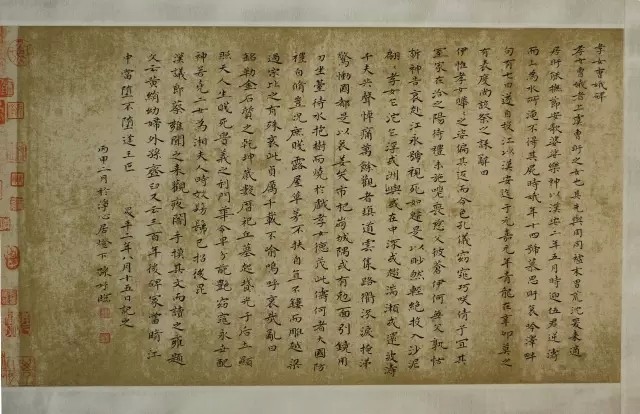 孝女曹娥碑
孝女曹娥者上虞曹盱之女也其先與周同祖末胄荒沈爰來適
居盱能撫節安歌婆娑樂神以漢安二年五月時迎伍君逆濤
而上為水所淹不得其屍時娥年十四號慕思盱哀吟澤畔
旬有七日遂自投江以漢安迄于元嘉元年青龍在辛卯莫之
有表度尚設祭之誄辭曰
伊惟孝女曄曄之姿偏其返而令色孔儀窈窕巧咲倩兮宜其
室家在洽之陽待禮未施嗟喪慈父彼蒼伊何無父孰怙
訴神告哀赴江永號視死如歸是以眇然輕絶投入沙泥
翩孝女乍沈乍浮或洲嶼或在中流或趨湍瀨或還波濤
千夫失聲悼痛萬餘觀者填道雲集路衢泣淚掩涕
驚慟國都是以哀姜哭市杞崩城隅或有剋面引鏡用
刀坐臺待水抱樹而燒於戲孝女德茂此儔何者大國防
禮自脩豈況庶賤露屋草茅不扶自直不鏤而雕越梁
過宋比之有殊哀此貞厲千載不渝嗚呼哀哉亂曰
銘勒金石質之乾坤歲數曆祀丘墓起墳光于后土顯
照夫人生賤死貴義之利門華早分葩艷窈窕永世配
神若堯二女為湘夫人時效髣髴已招後昆
漢議郎蔡雍聞之來觀夜闇手摸其文而讀之雍題
文云黃絹幼婦外孫齏臼又云三百年後碑冢當墮江
中當墮不墮逢王叵 昇平二年八月十五日記之
丙申二月於淨心居燈下